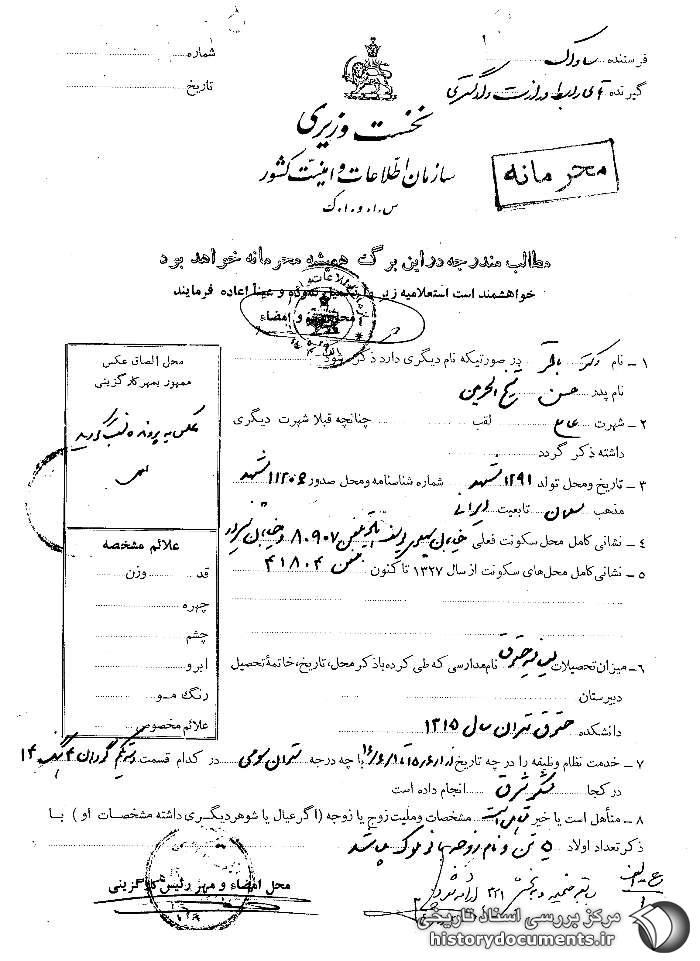 فرستنده ساواک
شماره
گیرنده آقای رابط وزارت دادگستری
تاریخ
نخست وزیری
سازمان اطلاعات و امنیت کشور
س.ا.و.ا.ک
محرمانه
مطالب مندرجه در این برگ همیشه محرمانه خواهد بود
خواهشمند است استعلامیه زیر را نموده و عیناً اعاده فرمایند
محل مهر و امضاء
۱ – نام دکتر باقر در صورتیکه نام دیگری دارد ذکر شود
نام پدر حسن شیخ الحرمین
۲ – شهرت عاملی لقب چنانچه قبلا شهرت دیگری
داشته ذکر گردد
۳ – تاریخ و محل تولد ۱۲۹۱ مشهد شماره شناسنامه و محل صدور ۱۱۲۰۶ مشهد
مذهب مسلمان تابعیت ایرانی
۴ – نشانی کامل محل سکونت فعلی خیابان تلفن ۸۰۹۰۷ خیابان
۵ – نشانی کامل محل‌های سکونت از سال ۱۳۲۷ تا کنون تلفن ۴۱۸۰۴
۶ – میزان تحصیلات لیسانسیه حقوق نام مدارسی که طی کرده با ذکر محل، تاریخ، خاتمهٔ تحصیل
دبیرستان
دانشکده حقوق تهران سال ۱۳۱۵
۷ – خدمت نظام وظیفه را در چه تاریخ از با چه درجه ستوان سومی در کدام قسمت
در کجا لشکر شرق انجام داده است
۸ – متأهل است یا خیر متاهل است مشخصات و ملیت زوج یا زوجه (اگر عیال یا شوهر دیگری داشته مشخصات او) با
ذکر تعداد اولاد ۵ تن و نام زوجه بانو میباشد
محل الصاق عکس
ممهور بمهر کارگزینی
عکس به پرونده نصب گردید
علائم مشخصه
قد وزن
چهره
چشم
ابرو
رنگ مو
علائم مخصوص
محل امضاء و مهر رئیس کارگزینی
مرکز بررسی اسناد تاریخی
historydocuments.ir